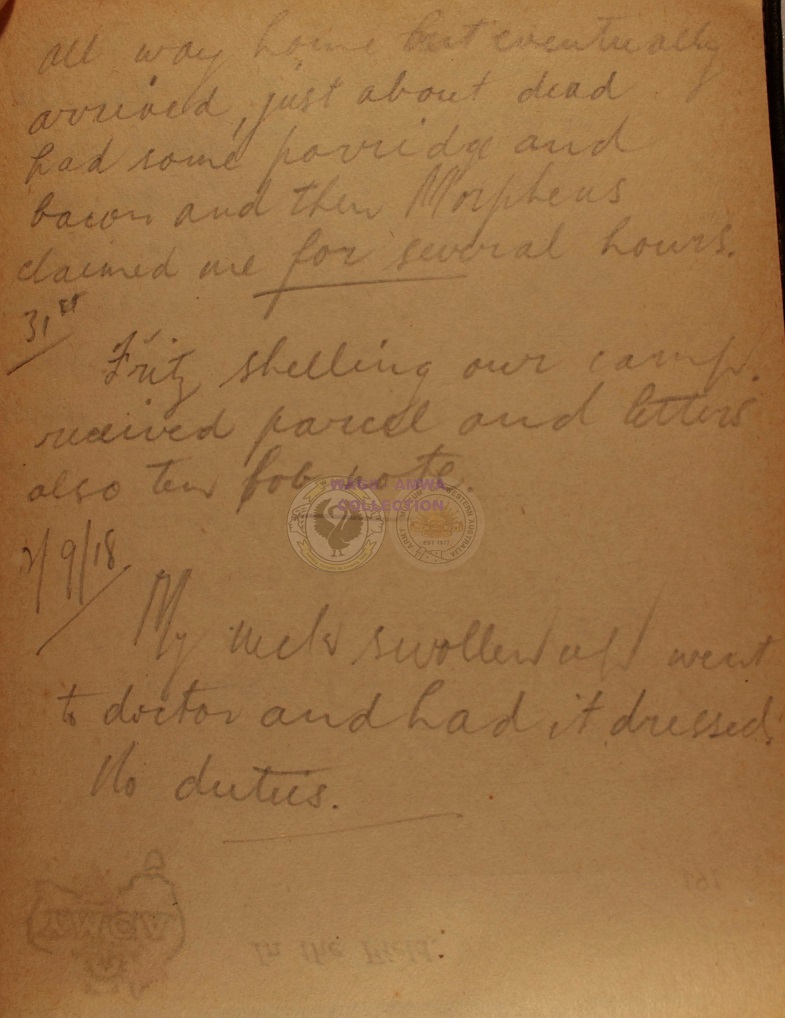 all way home but eventually
arrived, just about dead
had some porridge and
bacon and then Morpheus
claimed me for several hours.
31st
Fritz shelling our camp.
received parcel and letters
also ten bob note.
WASH AMWA
COLLECTION
/9/18
My neck swollen up went
to doctor and had it dressed.
No duties.
Y.M.C.A
In the Field.
191